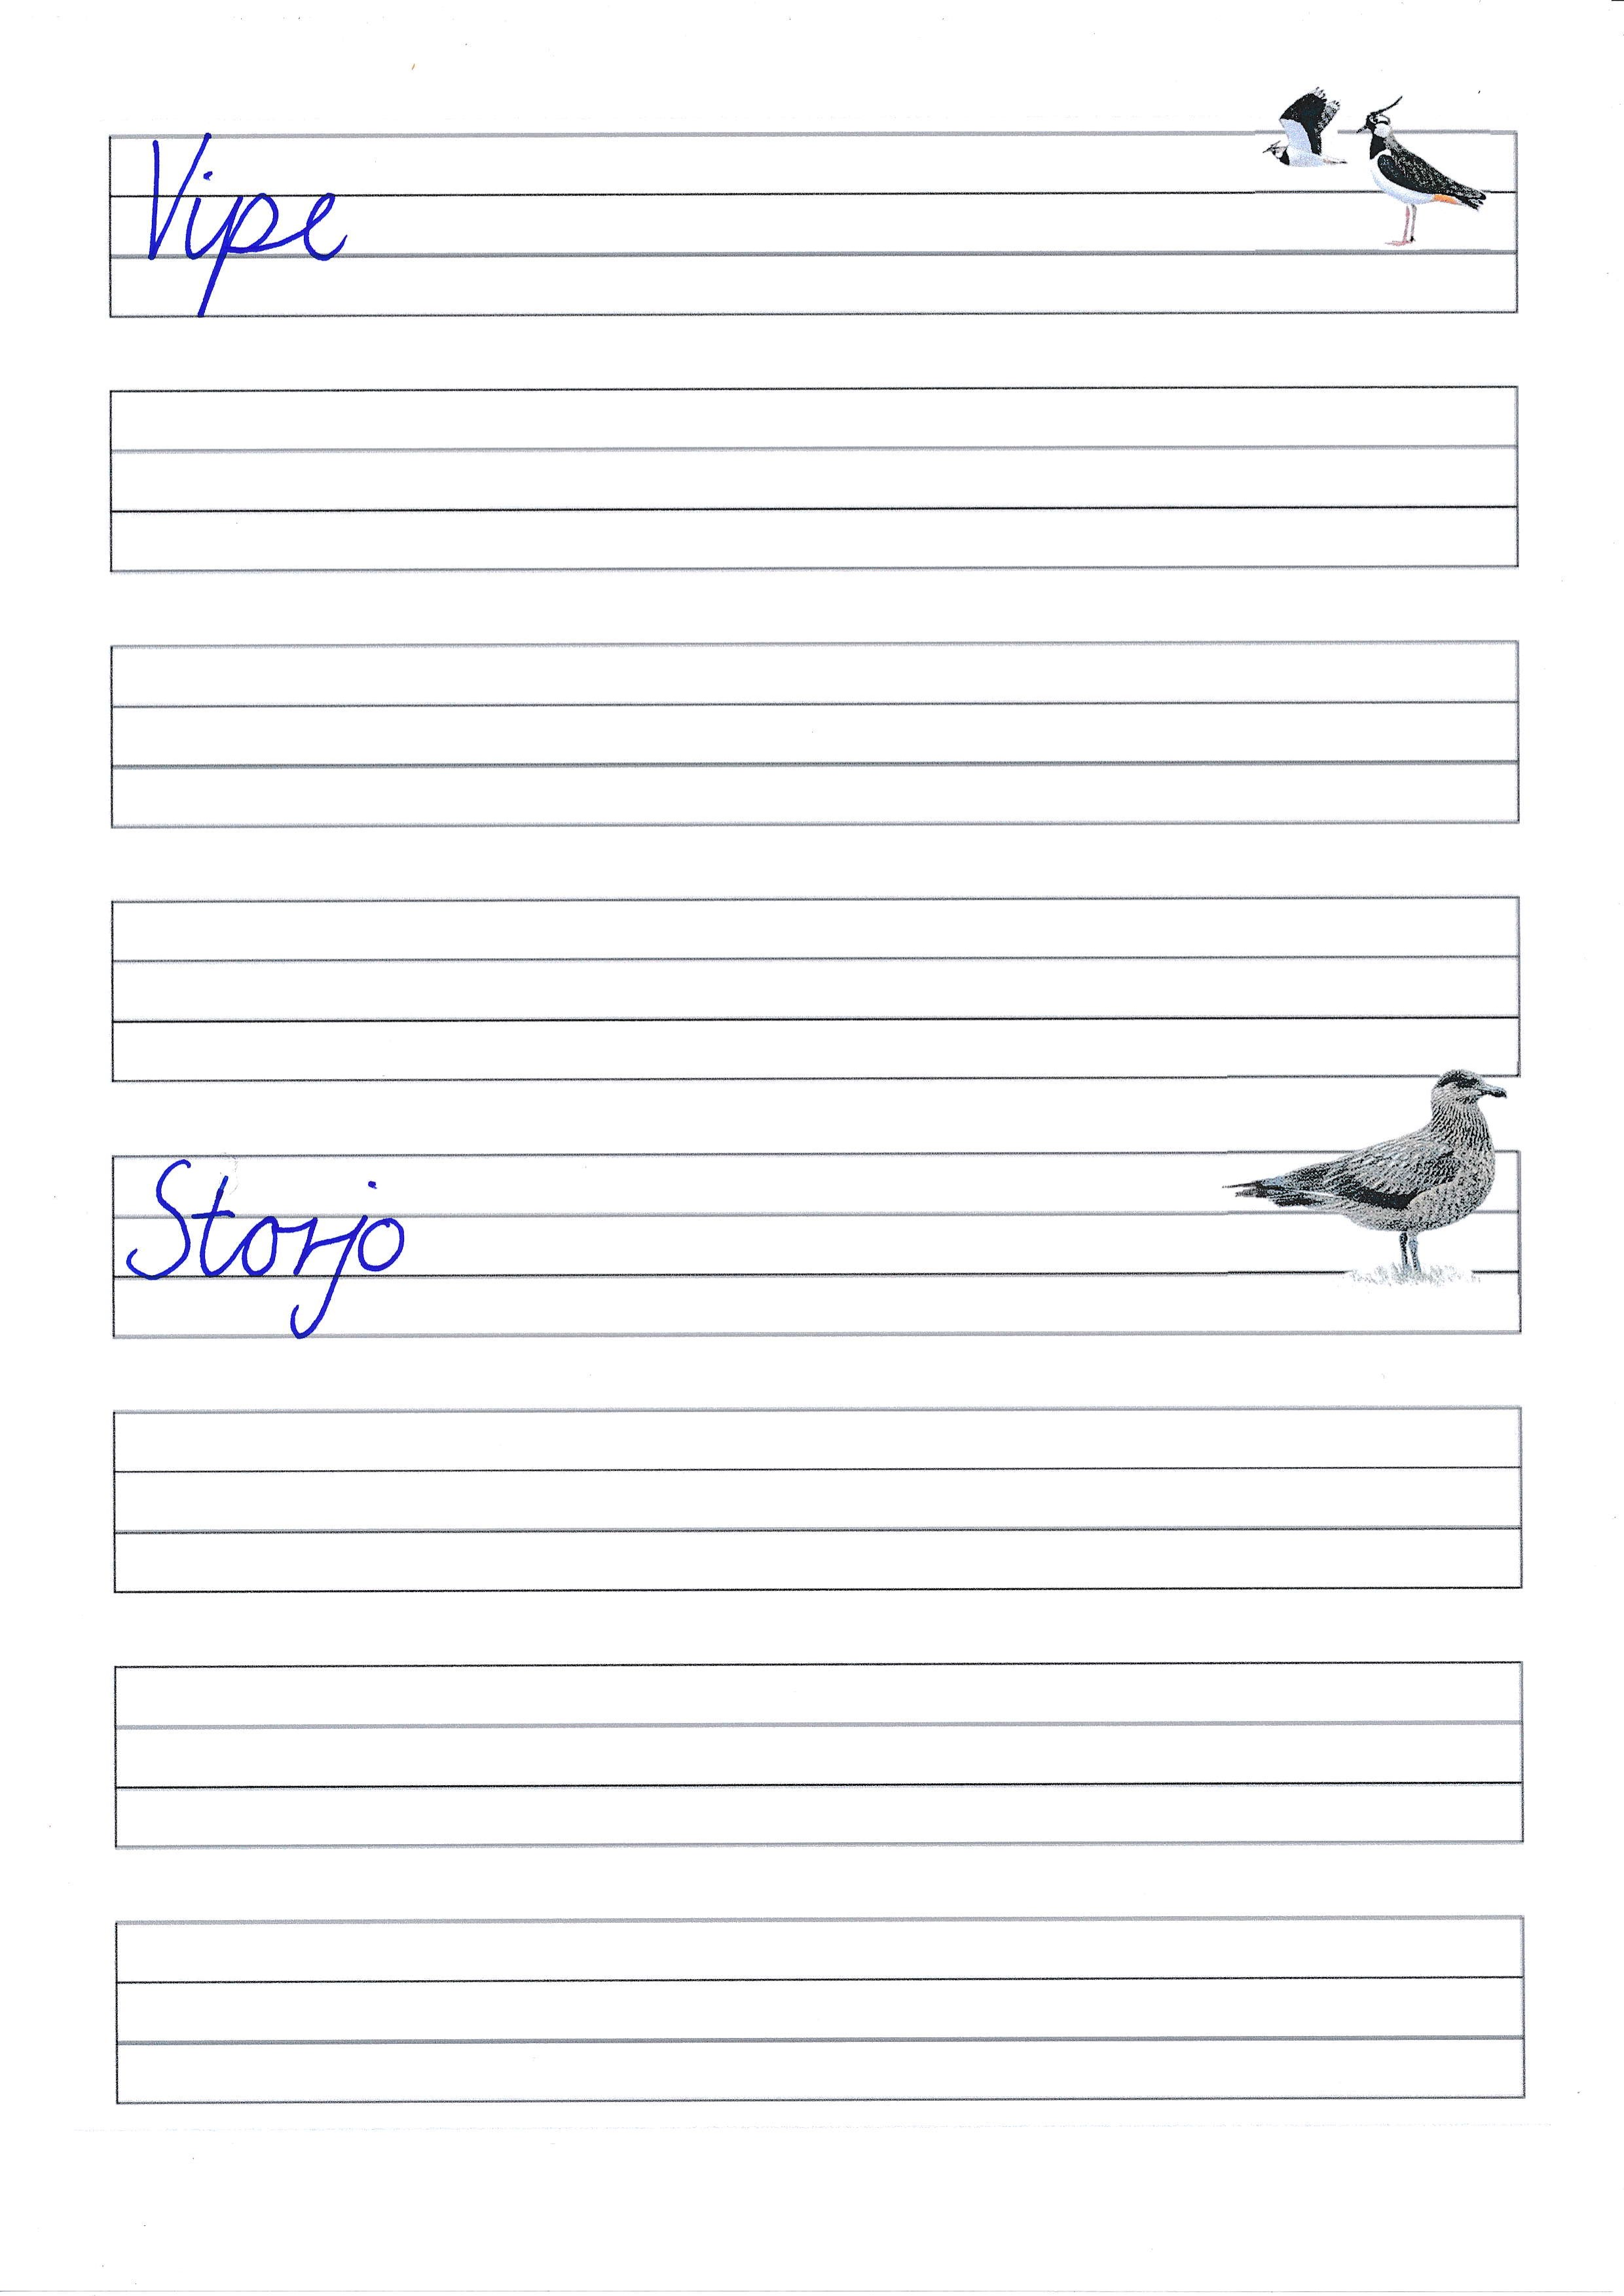 Vipe
Storjo